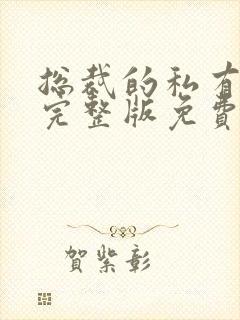 总裁的私有
完整版免費
賀紫彰